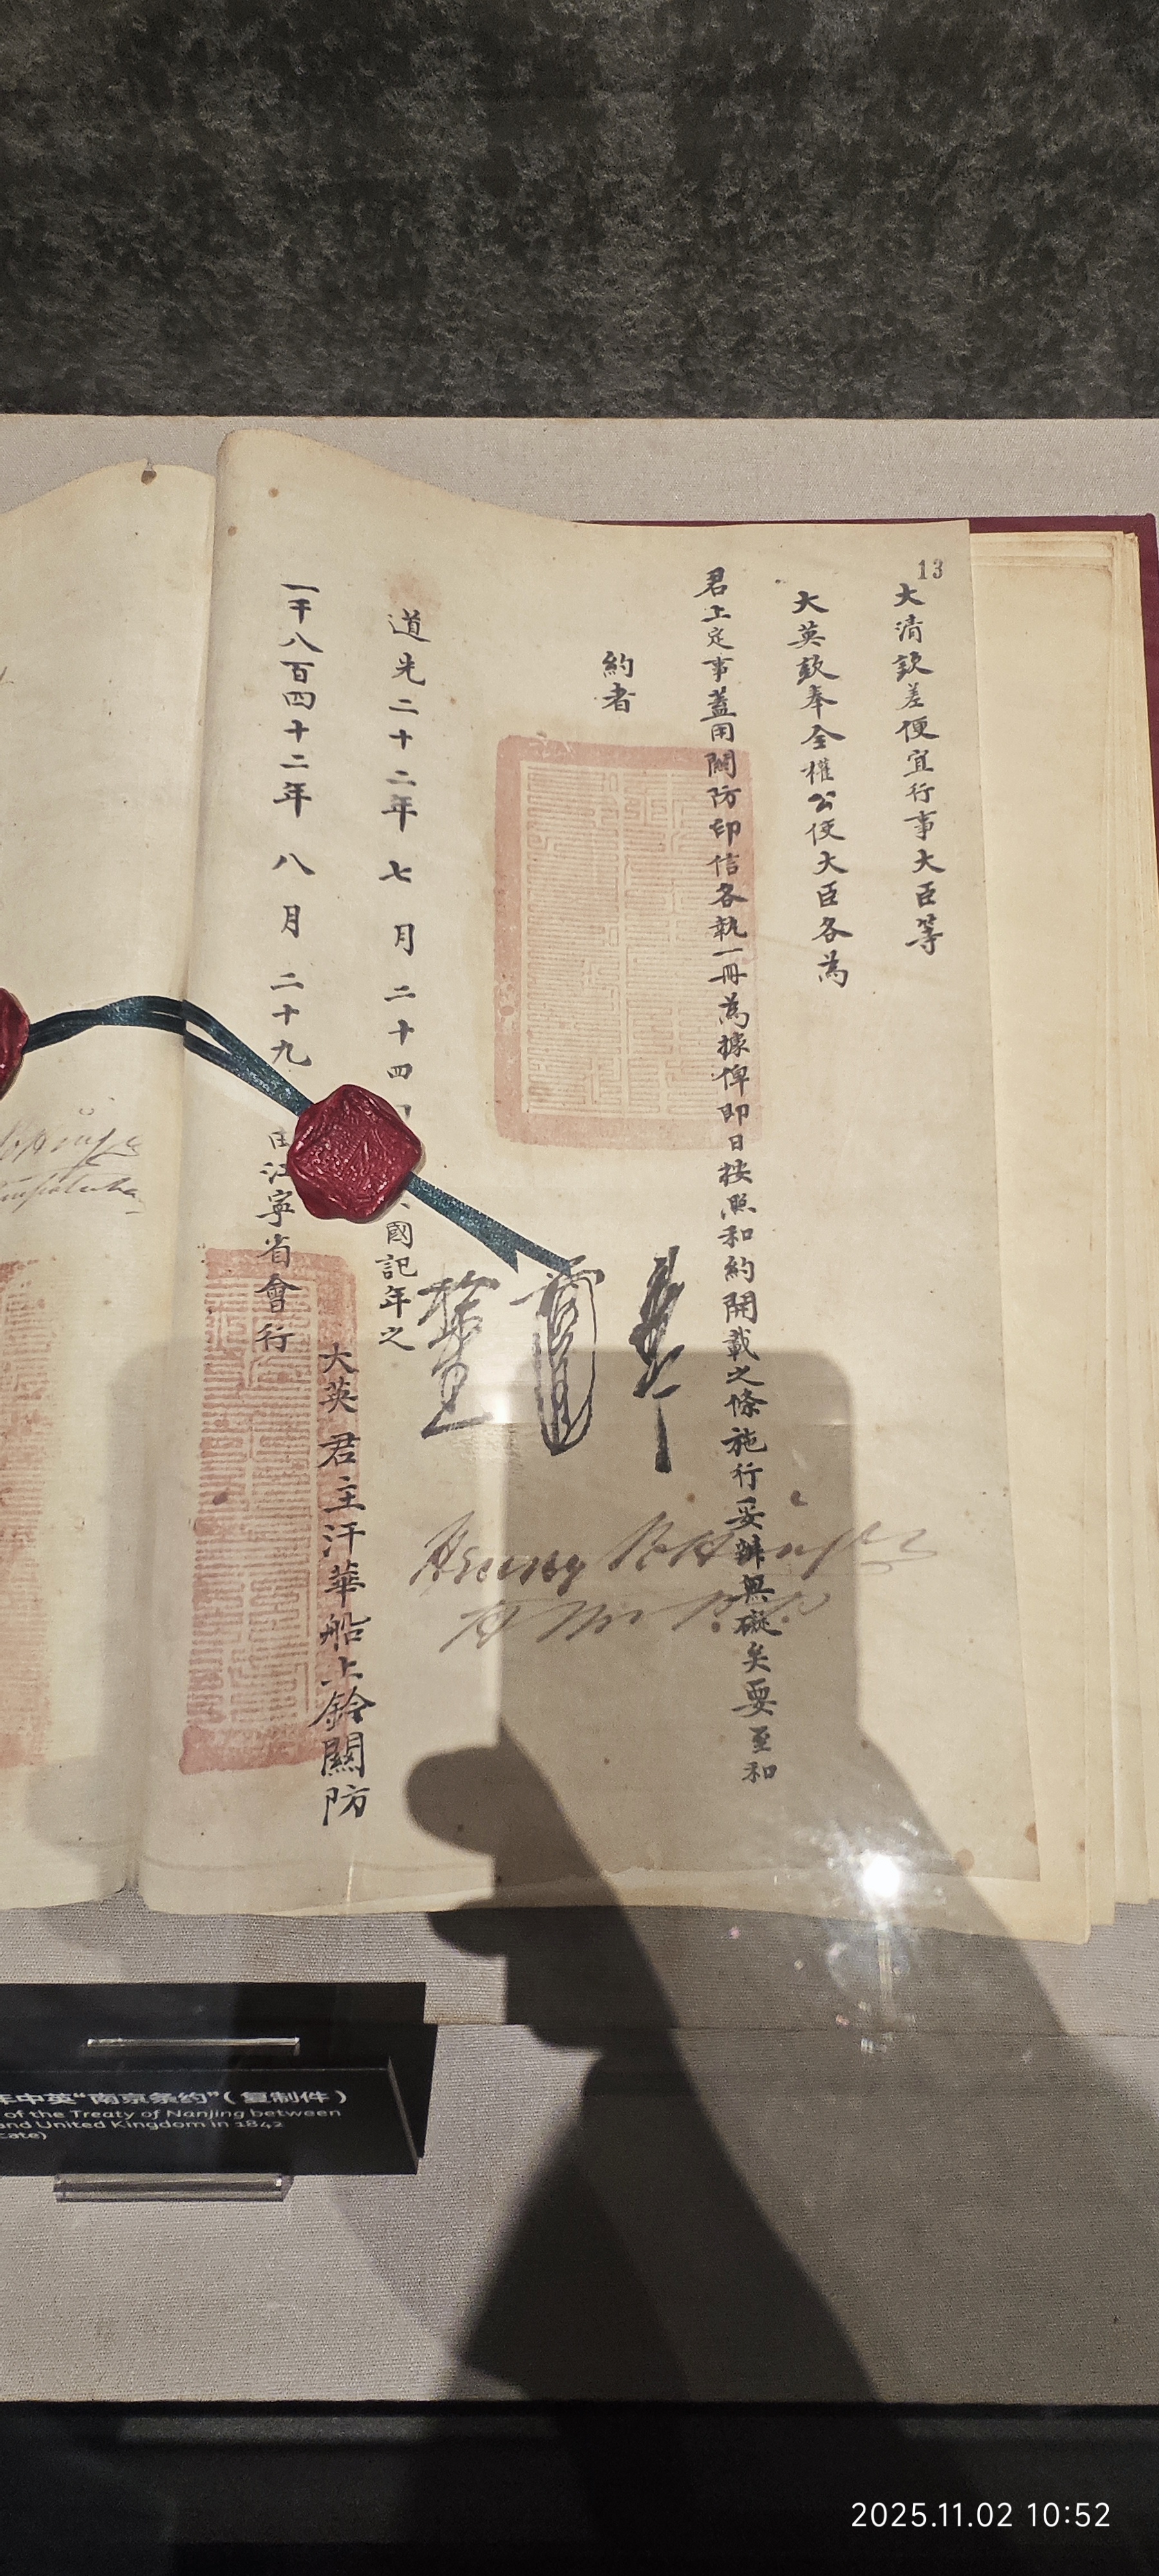 13
大清欽差便宜行事大臣等
大英欽奉全權公使大臣各為
君上定事蓋用關防印信各執一冊為據俾即日按照和約開載之條施行妥辦無礙矣要至和
約者
道光二十二年七月二十四
國記年之
一千八百四十二年八月二十九
由江寧省會行
大英君主汗華船上鈐關防
Henry Pottinger
年中英“南京条约”（复制件）
of the Treaty of Nanjing between
and United Kingdom in 1842
cate)
2025.11.02 10:52